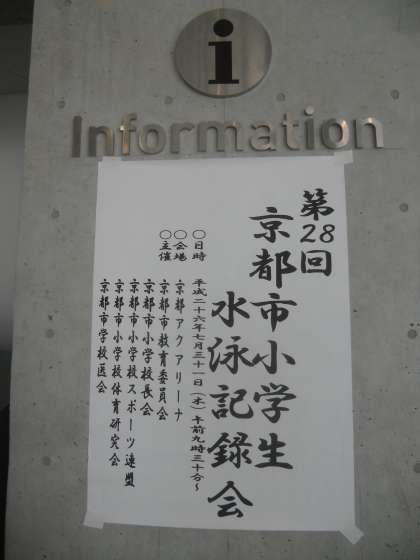 i
Information
第28回
京都市小学生
水泳記録会
○日時 平成二十六年七月三十一日(木)午前九時三十分~
○会場 京都アクアリーナ
○主催 京都市教育委員会
京都市小学校長会
京都市小学校スポーツ連盟
京都市小学校体育研究会
京都市学校医会